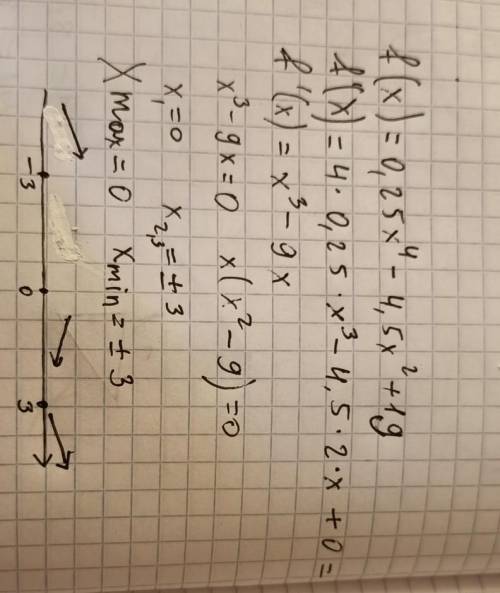 f(x) = 0,25x⁴ - 4,5x² + 19
f'(x) = 4·0,25·x³ - 4,5·2·x + 0 =
f'(x) = x³ - 9x
x³ - 9x = 0 x(x² - 9) = 0
x₁ = 0 x₂,₃ = ± 3
Xmax = 0 xmin = ± 3
-3 0 3